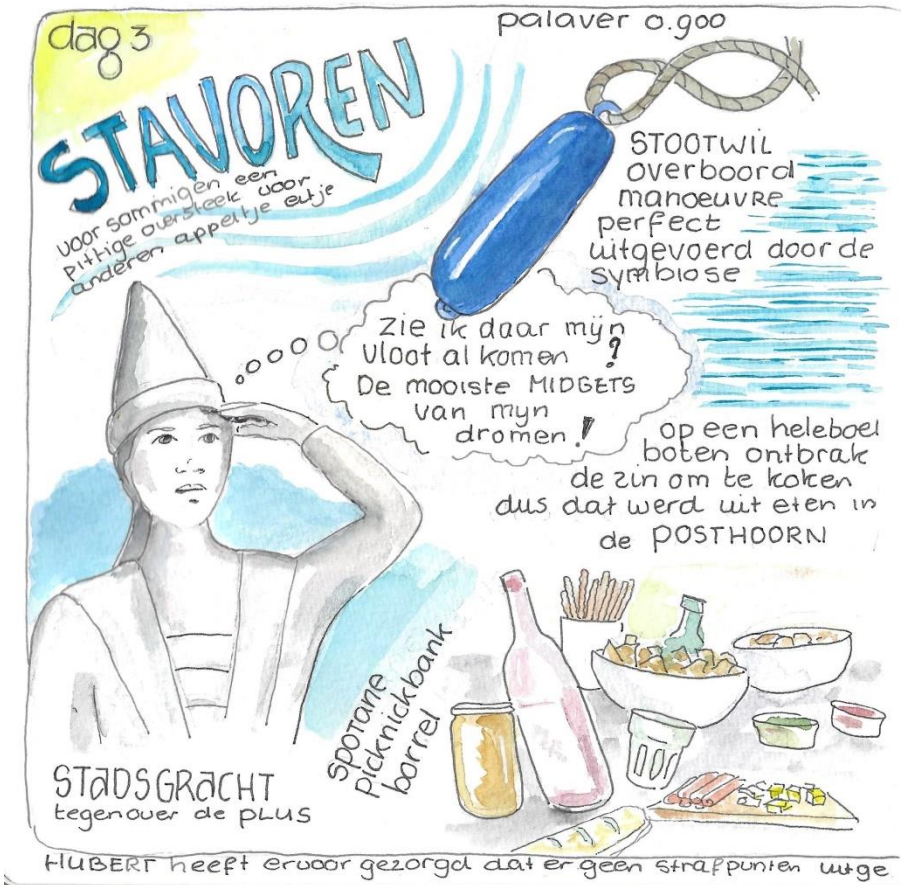 dag 3
palaver 0.900
STAVOREN
voor sommigen een
pittige oversteek voor
anderen appeltje eitje
STOOTWIL
overboord
manoeuvre
perfect
uitgevoerd door de
symbiose
zie ik daar mijn
vloot al komen ?
De mooiste MIDGETS
van mijn
dromen !
op een heleboel
boten ontbrak
de zin om te koken
dus dat werd uit eten in
de POSTHOORN
spotane
picknickbank
borrel
STADSGRACHT
tegenover de PLUS
HUBERT heeft ervoor gezorgd dat er geen strafpunten uitge